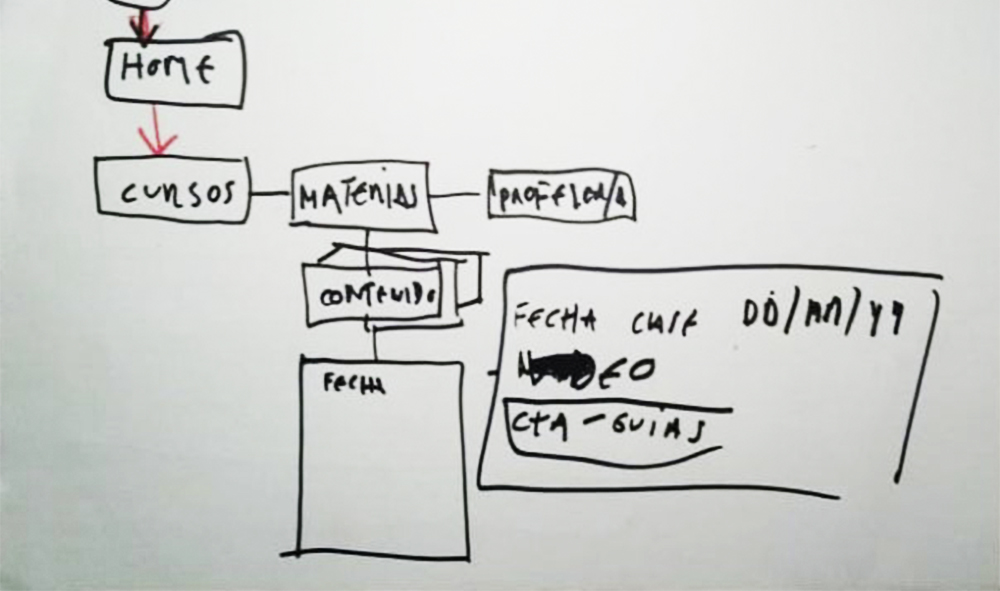 HOME
CURSOS
MATERIAS
PROFESOR/A
CONTENIDO
FECHA
FECHA CLASE DD/MM/YY
CTA - GUIAS